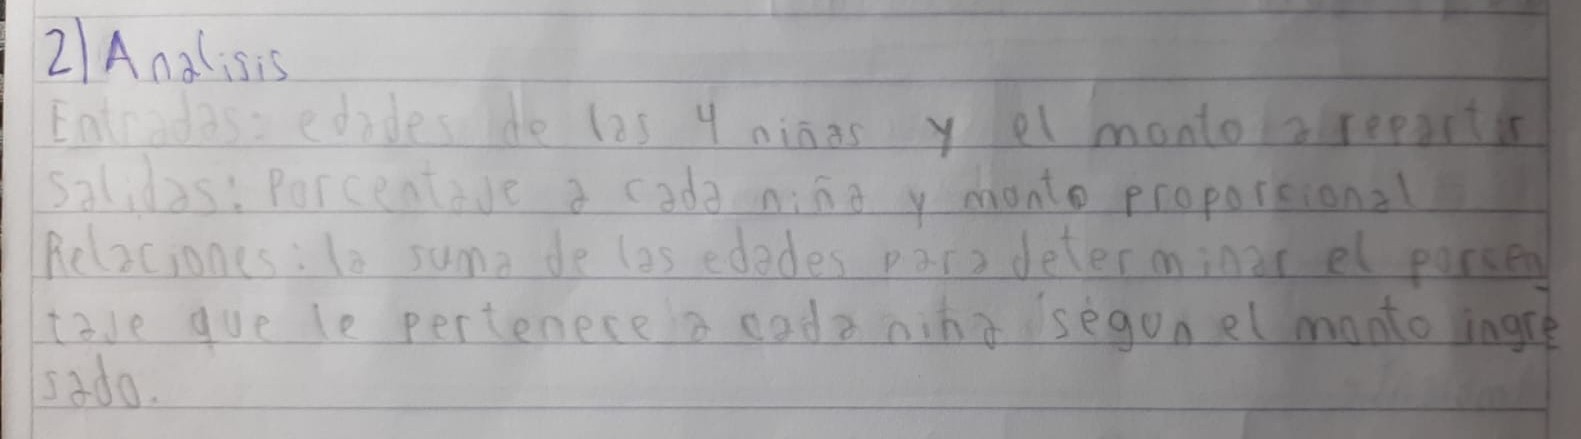 2) Analisis
Entradas: edades de las 4 niñas y el monto a repartir
Salidas: Porcentaje a cada niña y monto proporcional
Relaciones: la suma de las edades para determinar el porcen-
taje que le pertenece a cada niña ségun el monto ingre
sado.